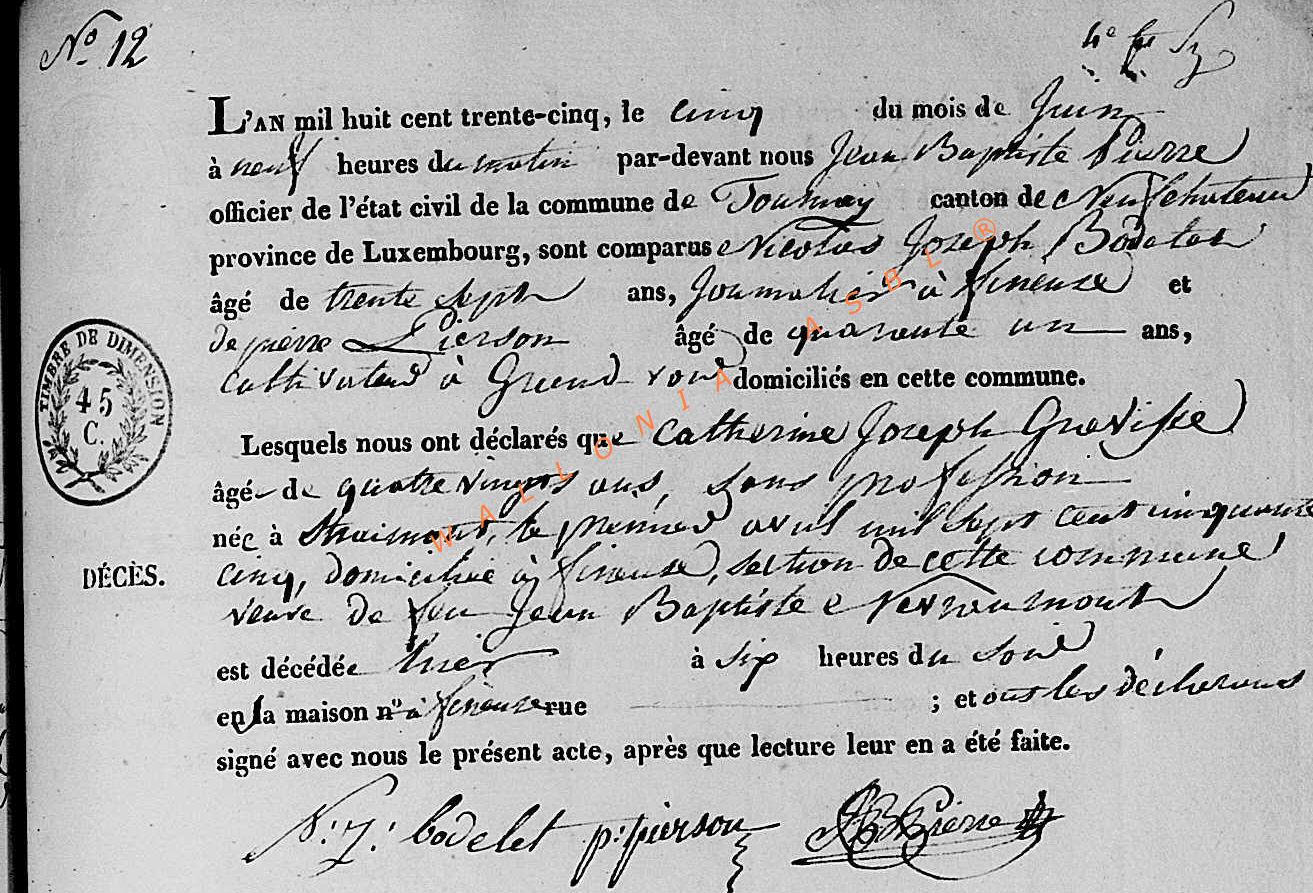 N° 12
L'AN mil huit cent trente-cinq, le cinq du mois de Juin
à neuf heures du matin par-devant nous Jean Baptiste Pierre
officier de l'état civil de la commune de Tournay canton de Neufchateau
province de Luxembourg, sont comparus Nicolas Joseph Bodelet
âgé de trente sept ans, Journalier à fineuse et
de pierre Pierson âgé de quarante un ans,
Cultivateur à Grand voir domiciliés en cette commune.
Lesquels nous ont déclarés que Catherine Joseph Grevisse
âgée de quatre vingts ans, sans profession
née à Straimont, le premier avril mil sept cent cinquante
cinq, domiciliée à fineuse, section de cette commune
veuve de feu Jean Baptiste Nerroumont
est décédée hier à six heures du soir
en sa maison n° à fineuse rue ; et ont les déclarans
signé avec nous le présent acte, après que lecture leur en a été faite.
N: J: bodelet p: pierson JB Pierre
DÉCÈS.
TIMBRE DE DIMENSION
45
C.
WALLONIA ASBL ®